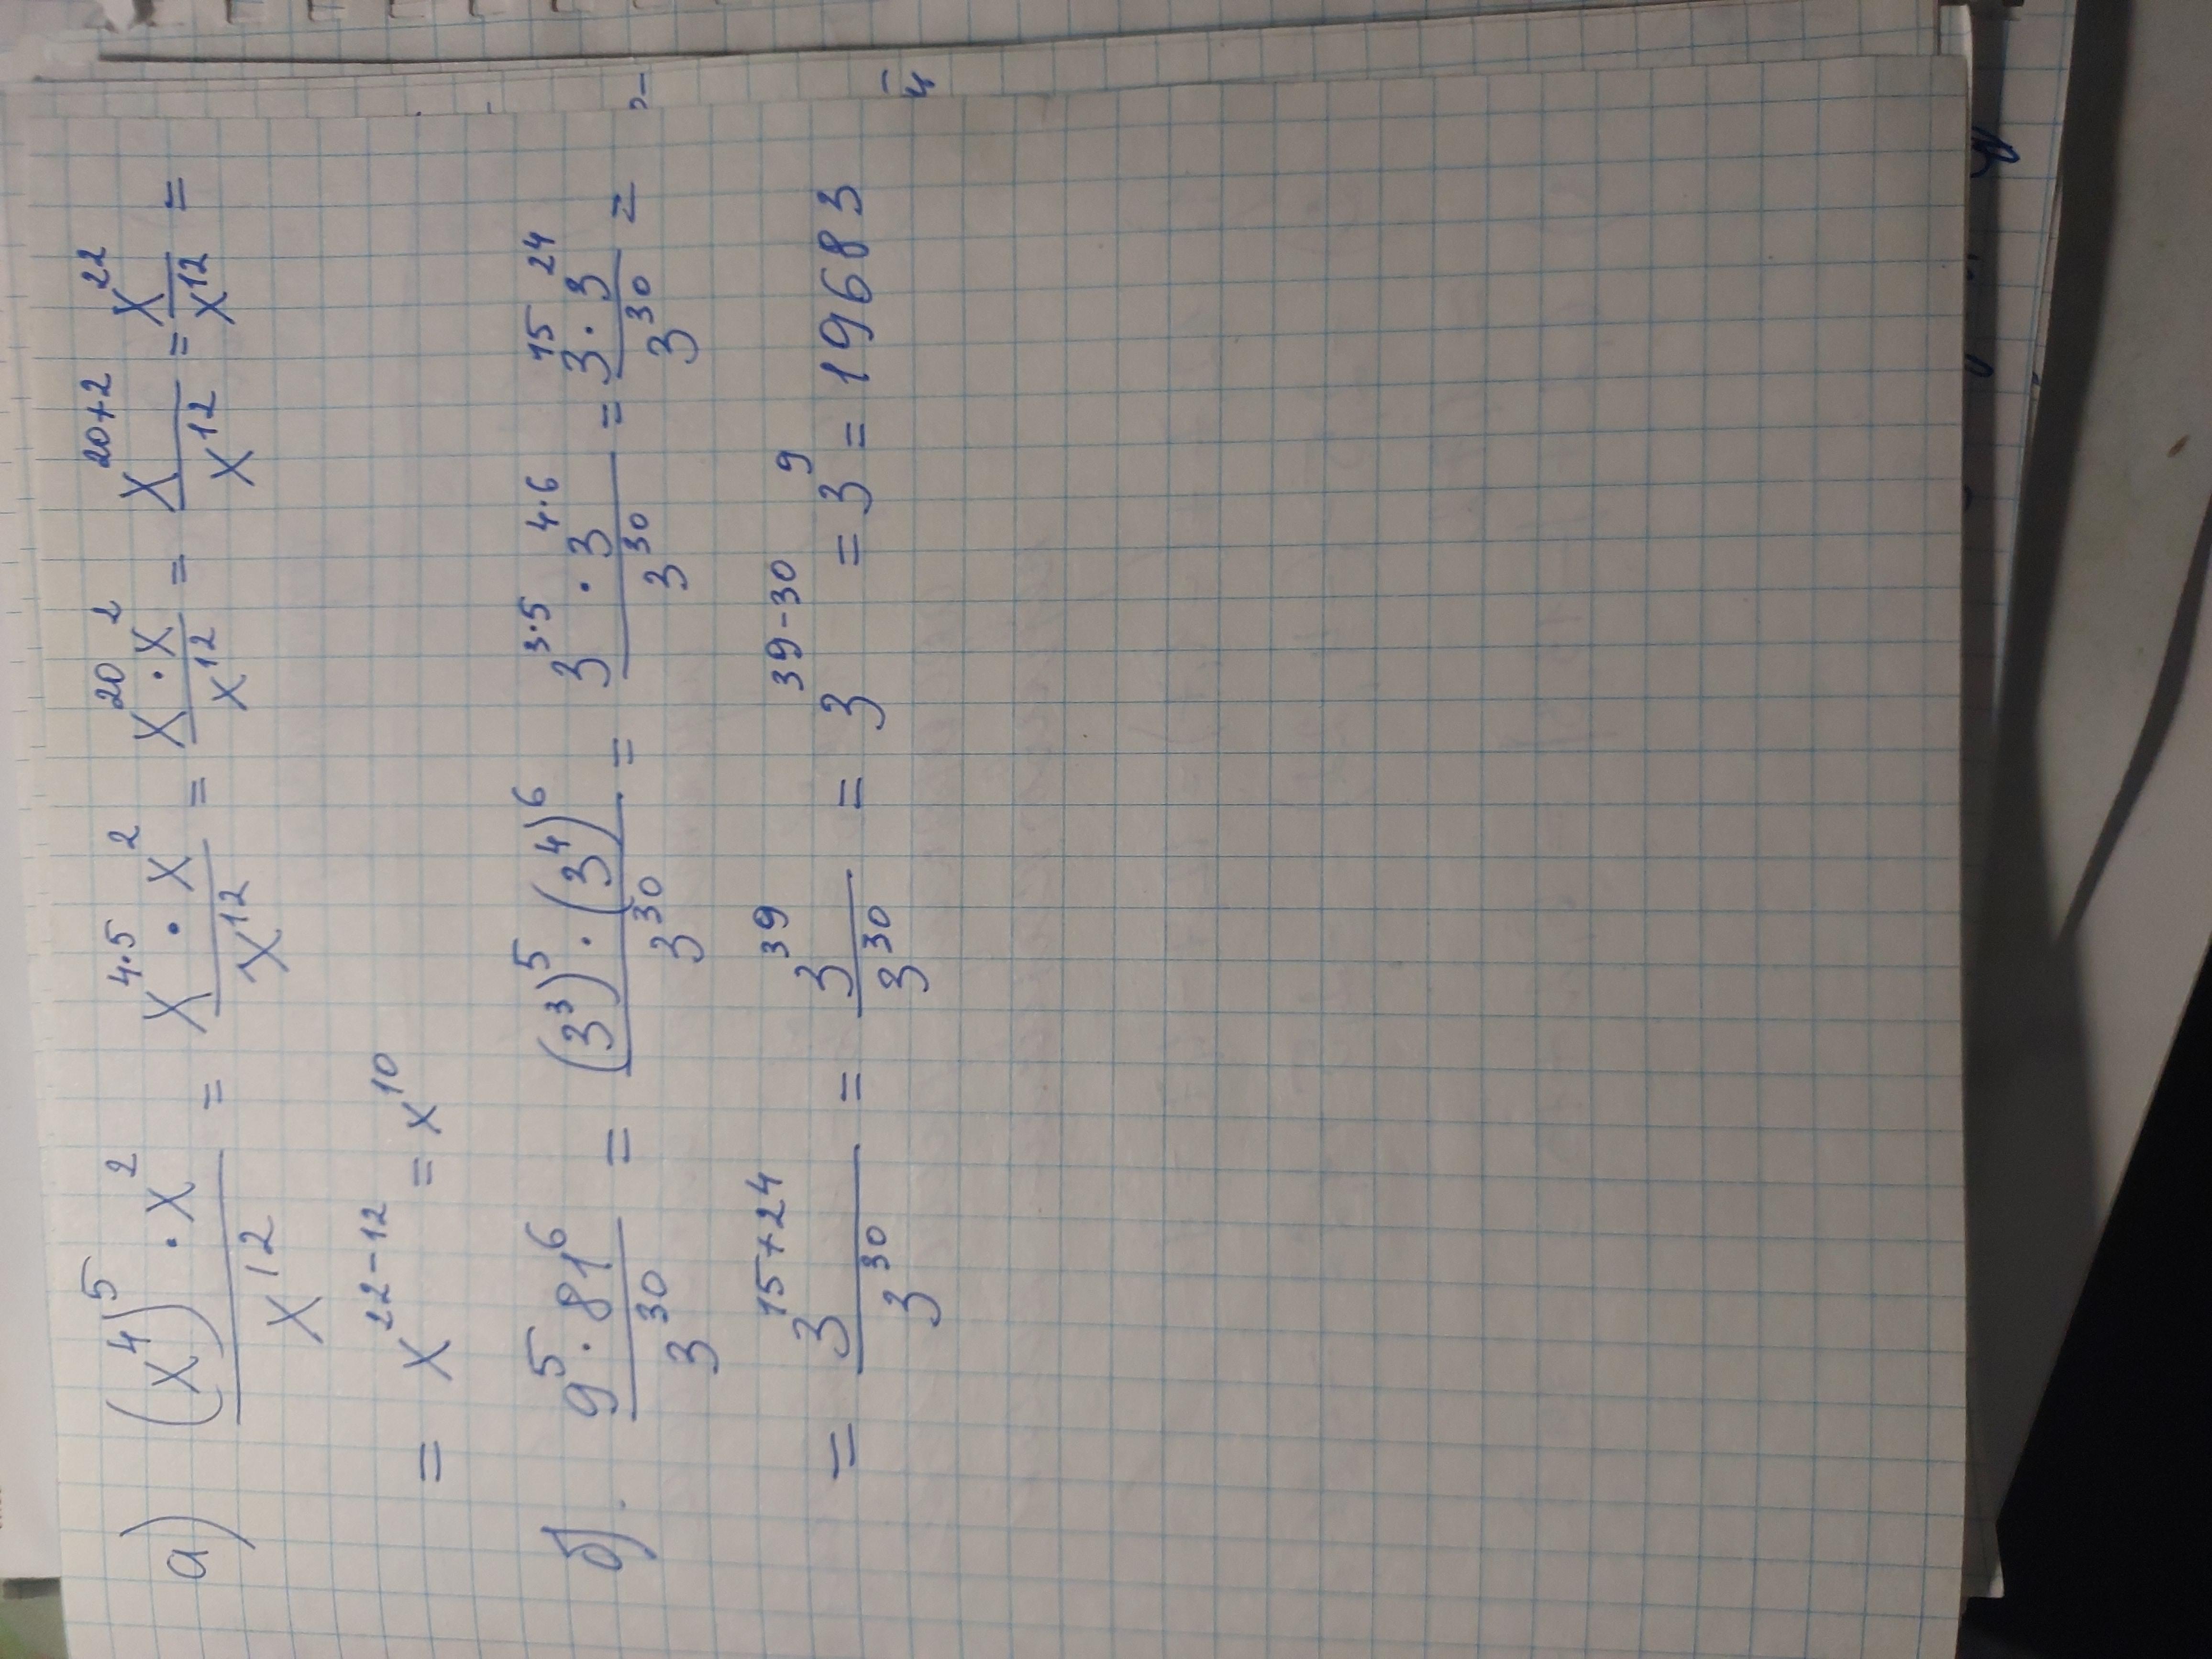 а) (x⁴)⁵ · x² / x¹² = x⁴·⁵ · x² / x¹² = x²⁰ · x² / x¹² = x²⁰⁺² / x¹² = x²² / x¹² =
= x²²⁻¹² = x¹⁰
б). 9⁵ · 81⁶ / 3³⁰ = (3³)⁵ · (3⁴)⁶ / 3³⁰ = 3³·⁵ · 3⁴·⁶ / 3³⁰ = 3¹⁵ · 3²⁴ / 3³⁰ =
= 3¹⁵⁺²⁴ / 3³⁰ = 3³⁹ / 3³⁰ = 3³⁹⁻³⁰ = 3⁹ = 19683